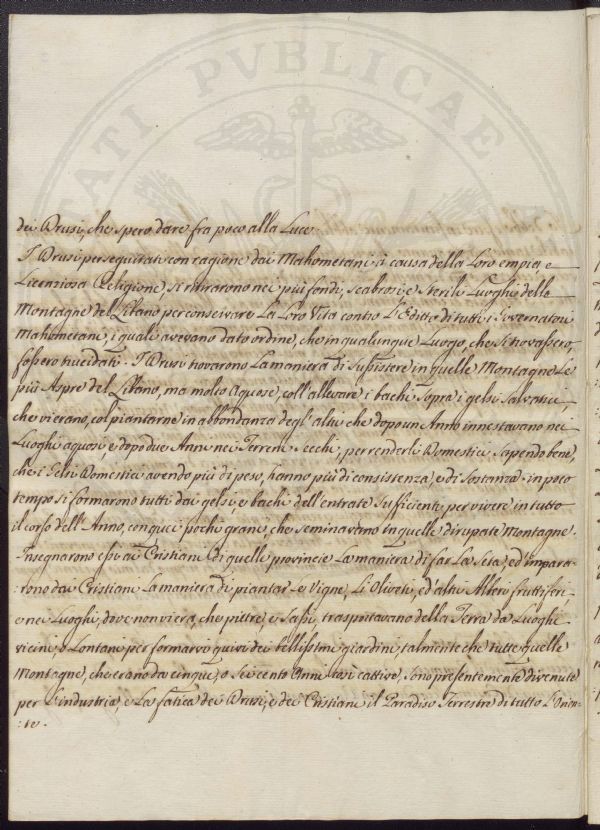 TATI PVBLICAE
dei Drusi, che spero dare fra poco alla Luce.
I Drusi perseguitati con ragione dai Mahometani à causa della Loro empia, e
Licenziosa Religione, si ritirarono nei più fondi, scabrosi e Sterili Luoghi delle
Montagne del Libano per conservare La Loro Vita contro L'Editto di tutti i Governatori
Mahometani, i quali avevano dato ordine, che in qualunque Luogo, che Si trovassero
fossero trucidati. I Drusi trovarono La maniera di Sussistere in quelle Montagne Le
più Aspre del Libano, ma molto Aquose, coll'allevare i bachi Sopra i gelsi Salvatici,
che vi erano, col piantarne in abbondanza degl'altri che dopo un Anno innestavano nei
Luoghi aquosi e dopo due Anni nei Terreni secchi, per renderli Domestici sapendo bene,
che i Gelsi Domestici avendo più di peso, hanno più di consistenza, e di Sostanza: in poco
tempo si formarono tutti dai gelsi, e bachi dell'entrate Sufficienti per vivere in tutto
il corso dell'Anno, con quei pochi grani, che seminavano in quelle dirupate Montagne.
Insegnarono essi ai Cristiani di quelle provincie La maniera di far La Seta, ed'impara-
:rono dai Cristiani La maniera di piantar Le Vigne, Li Oliveti, ed'altri Alberi fruttiferi
e nei Luoghi, dove non v'era, che pietre, e Sassi, trasportavano della Terra da Luoghi
vicini, o Lontani per formarvi quivi dei bellissimi giardini, talmente che tutte quelle
Montagne, che erano da cinque, o Seicento Anni così cattive, Sono presentemente divenute
per L'industria, e La fatica dei Drusi, e dei Cristiani il Paradiso Terrestre di tutto L'Orien-
:te.